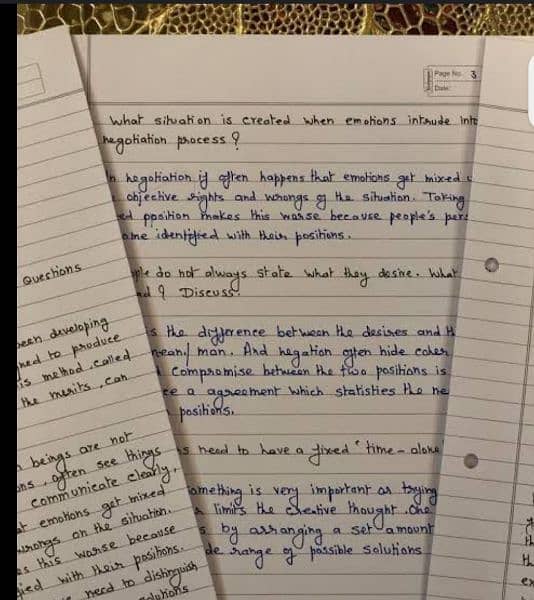 Page No. 3
Date:
What situation is created when emotions intrude into
negotiation process ?
In negotiation if often happens that emotions get mixed
objective rights and wrongs of the situation. Taking
ed pposition makes this worse because people's pers
ome identified with their positions.
ple do not always state what they desire. What
nd ? Discuss.
is the difference between the desires and
mean/ man. And negation often hide
Compromise between the two positions is
ce a agreement which statisties the ne
positions.
s need to have a fixed "time-alone
something is very important as trying
limits the creative thought. One
s by arranging a set amount
de range of possible solutions
Questions
been developing
ned to produce
is method called
the merits, can
n beings are not
ons, often see things
communicate clearly.
at emotions get mixed
wrongs on the situation.
es this worse because
ied with their positions.
need to distinguish
solutions